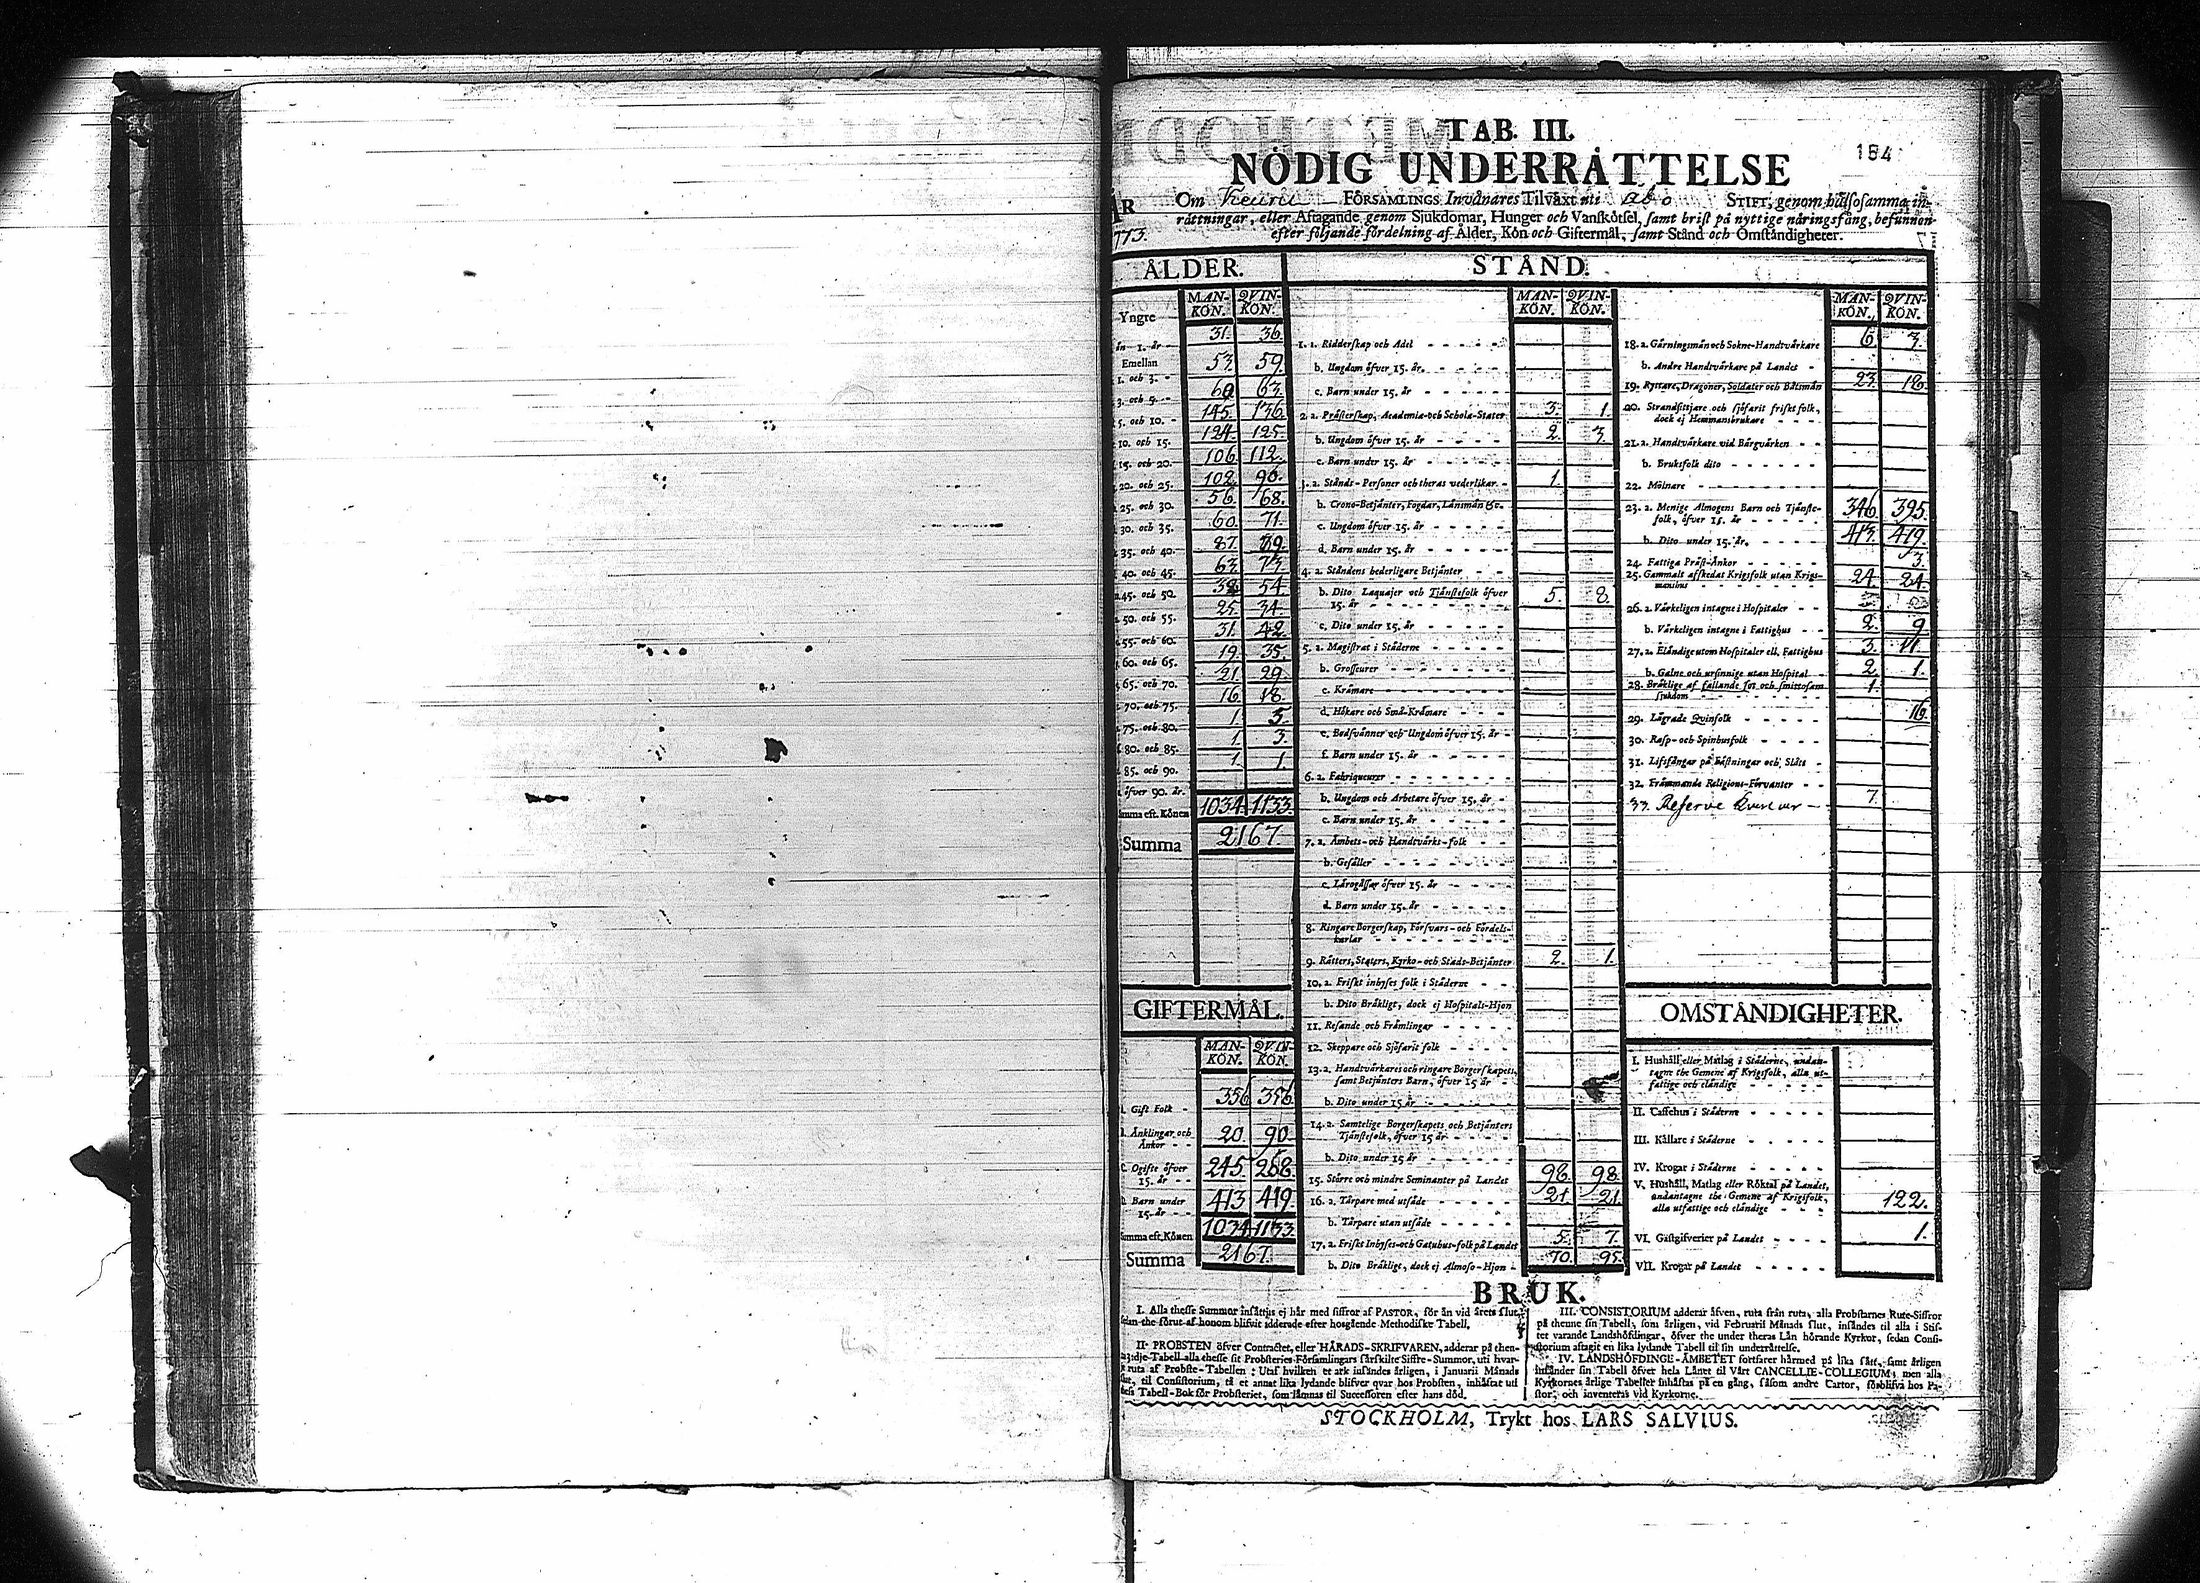 TAB. III.
184
NÖDIG UNDERRÄTTELSE
ÅR 1773.
Om Keuru FÖRSAMLINGS Invånares Tilväxt uti Åbo STIFT, genom hälsosamma in-
rättningar, eller Aftagande genom Sjukdomar, Hunger och Vanskötsel, samt brist på nyttige näringsfång, befunnen
efter följande fördelning af Ålder, Kön och Giftermål, samt Stånd och Omständigheter.
ÅLDER.
MAN-KÖN. QVIN-KÖN.
Yngre
än 1. år 31. 36.
Emellan
1. och 3. 53. 59.
3. och 5. 60 63.
5. och 10. 145. 136.
10. och 15. 124. 125.
15. och 20. 106. 112.
20. och 25. 102. 90.
25. och 30. 56. 68.
30. och 35. 60. 71.
35. och 40. 87. 89.
40. och 45. 63. 73.
45. och 50. 54.
50. och 55. 25. 34.
55. och 60. 31. 42.
60. och 65. 19. 35.
65. och 70. 21. 29.
70. och 75. 16. 18.
75. och 80. 1. 5.
80. och 85. 1. 3.
85. och 90. 1. 1.
öfver 90. år.
Summa eft. Könen 1034. 1133.
Summa 2167.
GIFTERMÅL.
MAN-KÖN. QVIN-KÖN.
Gift Folk 356 356
Änklingar och
Änkor 20. 90.
C. Ogifte öfver
15. år 245. 268.
Barn under
15. år 413. 419.
Summa eft. Könen 1034. 1133.
Summa 2167.
STÅND.
MAN-KÖN. QVIN-KÖN.
1. 1. Ridderskap och Adel
b. Ungdom öfver 15. år.
c. Barn under 15. år
2. a. Prästerskap, Academiæ-och Schola-Stater 3. 1.
b. Ungdom öfver 15. år 2. 3.
c. Barn under 15. år
3. a. Stånds-Personer och theras vederlikar 1.
b. Crono-Betjänter, Fogdar, Länsmän &c.
c. Ungdom öfver 15. år
d. Barn under 15. år
4. a. Ståndens hederligare Betjänter
b. Dito Laquajer och Tjänstefolk öfver
15. år 5. 8.
c. Dito under 15. år
5. a. Magistrat i Städerne
b. Grosseurer
c. Krämare
d. Hökare och Små-Krämare
e. Bodsvänner och Ungdom öfver 15. år
f. Barn under 15. år
6. a. Fabriqueurer
b. Ungdom och Arbetare öfver 15. år
c. Barn under 15. år
7. a. Ämbets-och Handtvärks-folk
b. Gesäller
c. Lärogåssar öfver 15. år
d. Barn under 15. år
8. Ringare Borgerskap, Försvars-och Fördels-
karlar
9. Rätters, Staters, Kyrko-och Stads-Betjänter 2. 1.
10. a. Friskt inhyses folk i Städerne
b. Dito Bräkligt, dock ej Hospitals-Hjon
11. Resande och Främlingar
12. Skeppare och Sjöfarit folk
13. a. Handtvärkares och ringare Borgerskapets,
samt Betjänters Barn, öfver 15 år
b. Dito under 15 år
14. a. Samtelige Borgerskapets och Betjänters
Tjänstefolk, öfver 15 år
b. Dito under 15 år
15. Större och mindre Hemmanter på Landet 98. 98.
16. a. Tårpare med utsäde 21. 21.
b. Tårpare utan utsäde
17. a. Friskt Inhyses-och Gatuhus-folk på Landet 5. 7.
b. Dito Bräkligt, dock ej Almoso-Hjon 70. 95.
MAN-KÖN. QVIN-KÖN.
18. a. Gärningsmän och Sokne-Handtvärkare 6. 3.
b. Andre Handtvärkare på Landet
19. Ryttare, Dragoner, Soldater och Båtsmän 23. 18.
20. Strandsittjare och sjöfarit friskt folk,
dock ej Hemmansbrukare
21. a. Handtvärkare vid Bärgvärken
b. Bruksfolk dito
22. Mölnare
23. a. Menige Almogens Barn och Tjänste-
folk, öfver 15. år 346. 395.
b. Dito under 15. år. 413. 419.
24. Fattiga Präst-Änkor 3.
25. Gammalt afskedat Krigsfolk utan Krigs-
manshus 24. 24.
26. a. Värkeligen intagne i Hospitaler
b. Värkeligen intagne i Fattighus 2. 9
27. a. Eländige utom Hospitaler ell. Fattighus 3. 11.
b. Galne och ursinnige utan Hospital 2. 1.
28. Bräklige af fallande sot och smittosam
sjukdom 1.
29. Lägrade Qvinfolk 16.
30. Rasp-och Spinhusfolk
31. Lifsfångar på Fästningar och Slått
32. Främmande Religions-Förvanter
33. Reserve 7.
OMSTÄNDIGHETER.
I. Hushåll eller Matlag i Städerne, undan-
tagne the Gemene af Krigsfolk, alla ut-
fattige och eländige
II. Caffehus i Städerne
III. Källare i Städerne
IV. Krogar i Städerne
V. Hushåll, Matlag eller Röktal på Landet,
undantagne the Gemene af Krigsfolk,
alla utfattige och eländige 122.
VI. Gästgifverier på Landet 1.
VII. Krogar på Landet
BRUK.
I. Alla thesse Summor insättjas ej här med siffror af PASTOR, för än vid årets slut,
sedan the förut af honom blifvit adderade efter hosgående Methodiske Tabell.
II PROBSTEN öfver Contractet, eller HÄRADS-SKRIFVAREN, adderar på then-
Tabell alla thesse sit Probsteries Församlingars särskilte Siffre-Summor, uti hvar-
ruta af Probste-Tabellen: Utaf hvilken et ark insändes årligen, i Januarii Månads
slut, til Consistorium, tå et annat lika lydande blifver qvar hos Probsten, inhäftat uti
Tabell-Bok för Probsteriet, som lämnas til Successoren efter hans död.
III. CONSISTORIUM adderar äfven, ruta från ruta, alla Probstarnes Rute-Siffror
på thenne sin Tabell, som årligen, vid Februarii Månads slut, insändes til alla i Stif-
tet varande Landshöfdingar, öfver the under theras Län hörande Kyrkor, sedan Consi-
storium aftagit en lika lydande Tabell til sin underrättelse.
IV. LANDSHÖFDINGE-ÄMBETET fortfarer härmed på lika sätt, samt årligen
insänder sin Tabell öfver hela Länet til Vårt CANCELLIE-COLLEGIUM; men alla
Kyrkornes årlige Tabeller inhäftas på en gång, såsom andre Cartor, förblifva hos Pa-
stor, och inventeras vid Kyrkorne.
STOCKHOLM, Trykt hos LARS SALVIUS.